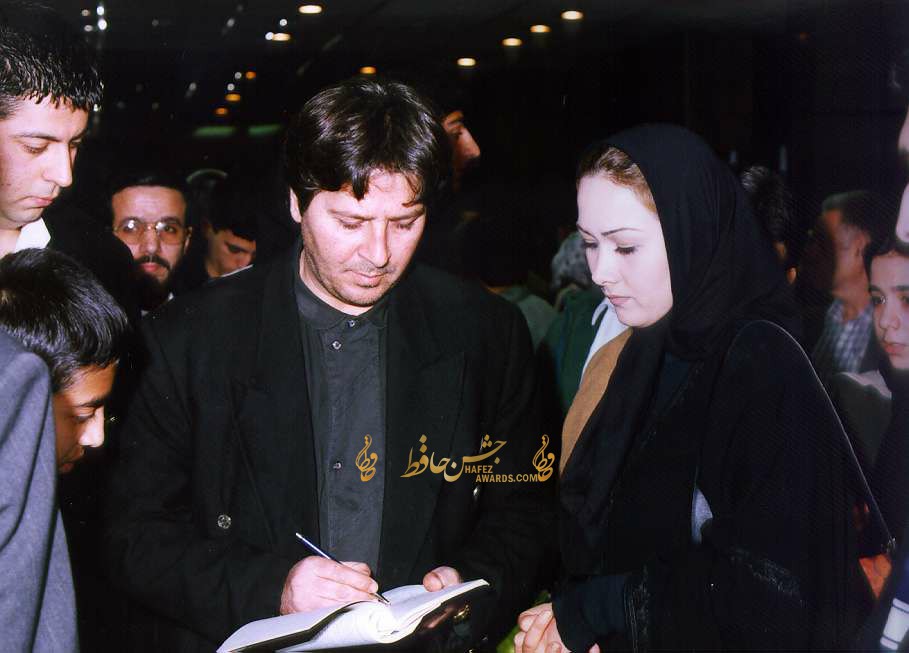 جشن حافظ
HAFEZ
AWARDS.COM